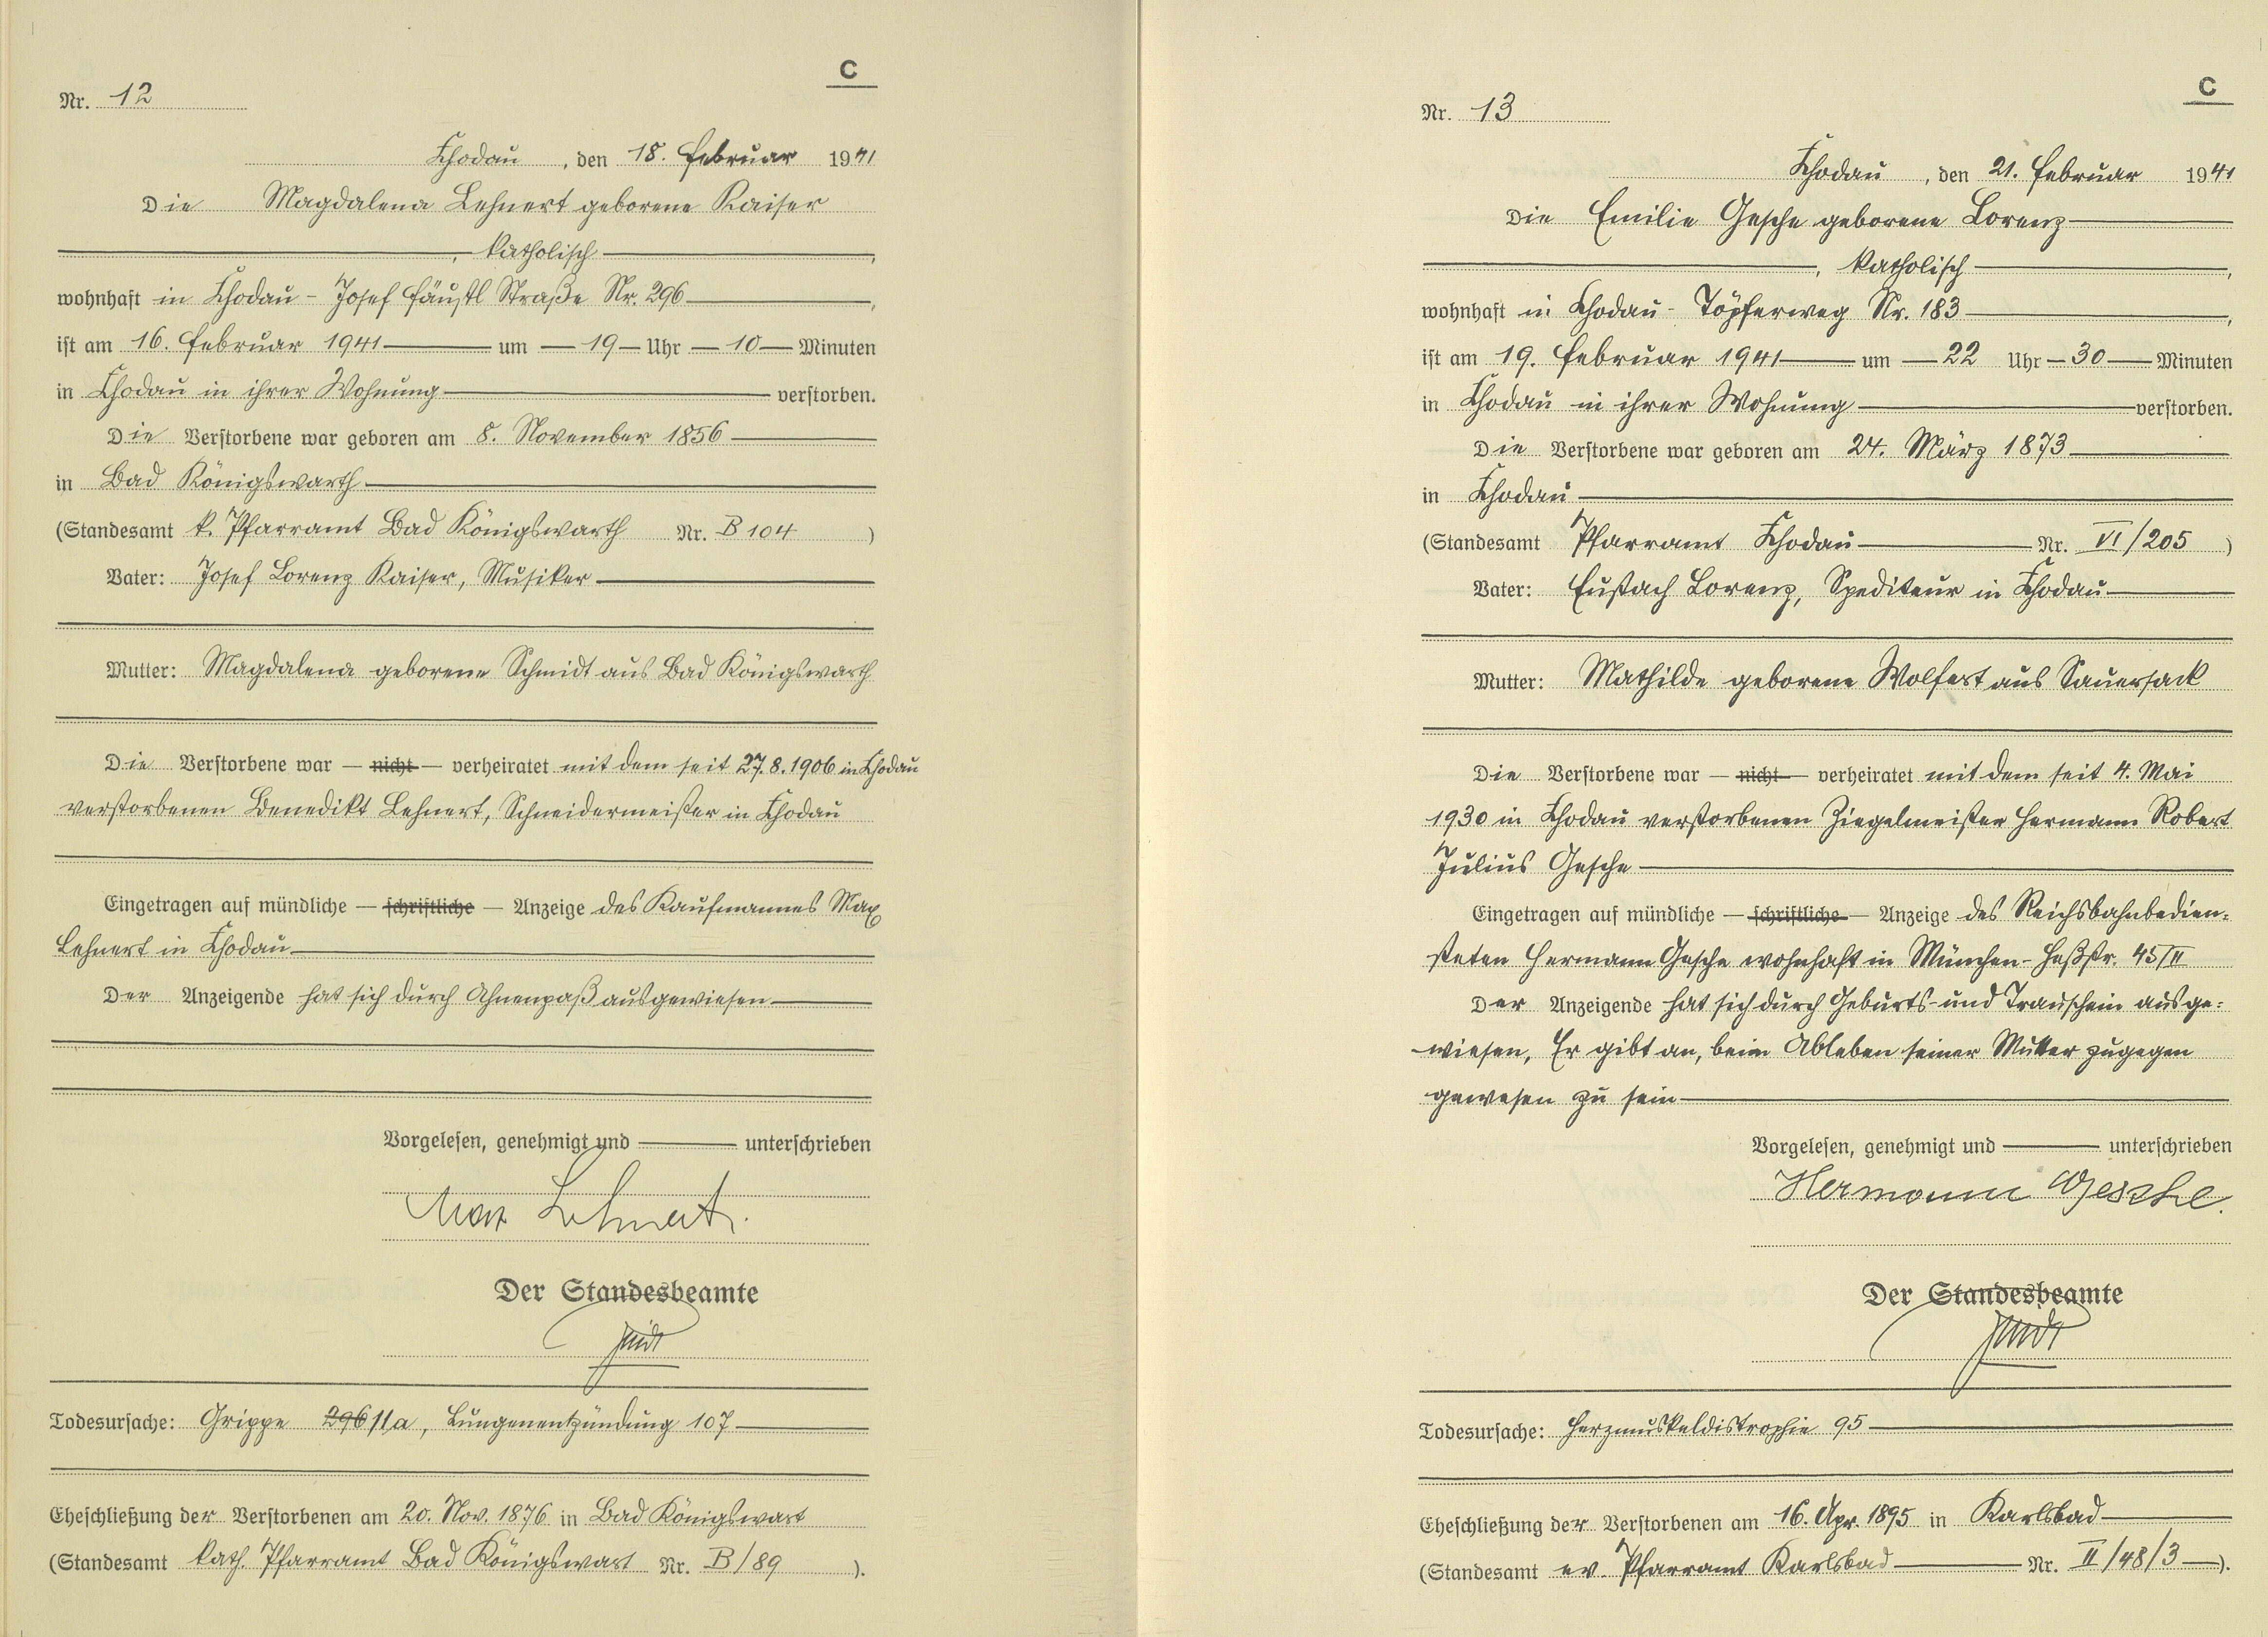 C
Nr. 12
Chodau, den 18. Februar 1941
Die Magdalena Lehnert geborene Kaiser
, katholisch ,
wohnhaft in Chodau - Josef Fäustl Straße Nr. 296 ,
ist am 16. Februar 1941 um — 19 — Uhr — 10 — Minuten
in Chodau in ihrer Wohnung verstorben.
Die Verstorbene war geboren am 8. November 1856
in Bad Königswarth
(Standesamt k. Pfarramt Bad Königswarth Nr. B 104 )
Vater: Josef Lorenz Kaiser, Musiker
Mutter: Magdalena geborene Schmidt aus Bad Königswarth
Die Verstorbene war — nicht — verheiratet mit dem seit 27.8.1906 in Chodau
verstorbenen Benedikt Lehnert, Schneidermeister in Chodau
Eingetragen auf mündliche — schriftliche — Anzeige des Kaufmannes Max
Lehnert in Chodau
Der Anzeigende hat sich durch Ahnenpaß ausgewiesen
Vorgelesen, genehmigt und unterschrieben
Max Lehnert.
Der Standesbeamte
Todesursache: Grippe 296 11a, Lungenentzündung 107
Eheschließung der Verstorbenen am 20. Nov. 1876 in Bad Königswart
(Standesamt kath. Pfarramt Bad Königswart Nr. B/89 ).
C
Nr. 13
Chodau, den 21. Februar 1941
Die Emilie Gesche geborene Lorenz
, katholisch ,
wohnhaft in Chodau - Töpferweg Nr. 183 ,
ist am 19. Februar 1941 um — 22 Uhr — 30 — Minuten
in Chodau in ihrer Wohnung verstorben.
Die Verstorbene war geboren am 24. März 1873
in Chodau
(Standesamt Pfarramt Chodau Nr. VI/205 )
Vater: Eustach Lorenz, Spediteur in Chodau
Mutter: Mathilde geborene Wolfert aus Sauersack
Die Verstorbene war — nicht — verheiratet mit dem seit 4. Mai
1930 in Chodau verstorbenen Ziegelmeister Hermann Robert
Julius Gesche
Eingetragen auf mündliche — schriftliche — Anzeige des Reichsbahnbedien=
steten Hermann Gesche wohnhaft in München - Heßstr. 45/II
Der Anzeigende hat sich durch Geburts- und Trauschein ausge=
wiesen, Er gibt an, beim Ableben seiner Mutter zugegen
gewesen zu sein
Vorgelesen, genehmigt und unterschrieben
Hermann Gesche.
Der Standesbeamte
Todesursache: Herzmuskeldistrophie 95
Eheschließung der Verstorbenen am 16. Apr. 1895 in Karlsbad
(Standesamt ev. Pfarramt Karlsbad Nr. II/48/3 ).